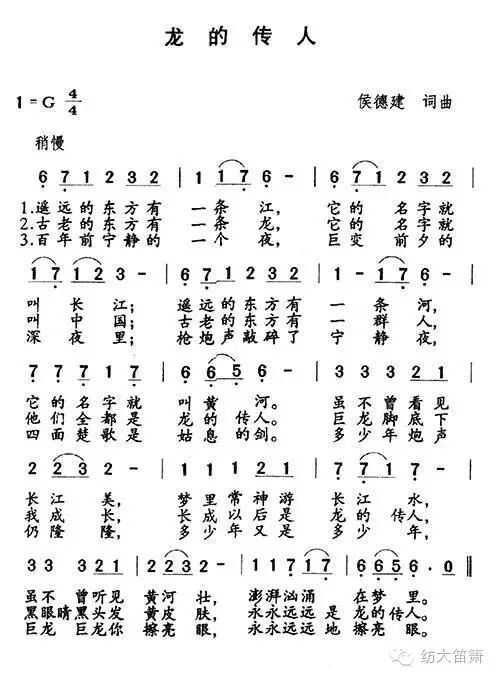 龙的传人
1=G 4/4
侯德建 词曲
稍慢
6 7 1 2 3 2 | 1 1 7 6 - | 6 7 1 2 3 2 |
1.遥远的东方有 一条 江, 它的 名字就
2.古老的东方有 一条 龙, 它的 名字就
3.百年前宁静的 一个 夜, 巨变 前夕的
1 7 1 2 3 - | 6 7 1 2 3 2 | 1 - 1 7 6 - |
叫 长 江; 遥远的东方有 一 条 河,
叫 中 国; 古老的东方有 一 群 人,
深 夜 里; 枪炮声敲碎了 宁 静 夜,
7 7 7 1 7 | 6 6 5 6 - | 3 3 3 3 2 1 |
它的 名字就 叫 黄 河。 虽不 曾看见
他们全都是 龙 的 传人。 巨龙脚底下
四面楚歌是 姑 息的剑。 多少年炮声
2 2 3 2 - | 1 1 1 2 1 | 7 7 1 7 - |
长 江 美, 梦里常神游 长江 水,
我 成 长, 长成以后是 龙的 传人,
仍 隆 隆, 多少年又是 多少 年,
3 3 3 3 2 1 | 2 2 3 2 - | 1 1 7 7 1 7 | 6 6 5 6 . 0 ‖
虽不 曾听见 黄河 壮, 澎湃汹涌 在梦里。
黑眼睛黑头发 黄皮 肤, 永永远远 是 龙的传人。
巨龙 巨龙你 擦亮 眼, 永永远远 地 擦亮眼。
纺大笛箫